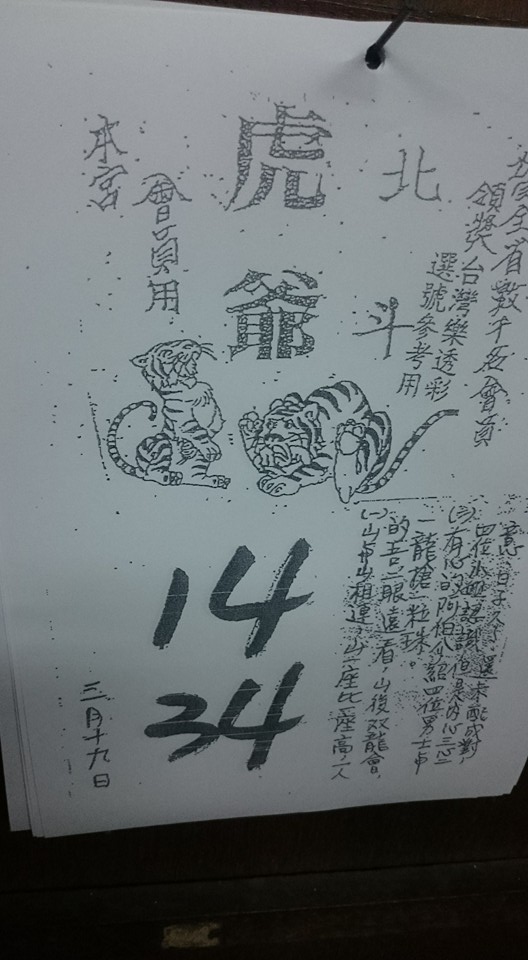 全省數千名會員
領獎台灣樂透彩
選號參考用
北斗
虎爺
會員用
本宮
(一)山与山相連,山一座比一座高,一人
的吉二眼遠看,山後双龍會,
一龍搶一粒珠。
有心的阿伯介紹四位男士与
四位小姐認識,但是內心三心二
意,日子久了,還未配成對,
14
34
三月十九日